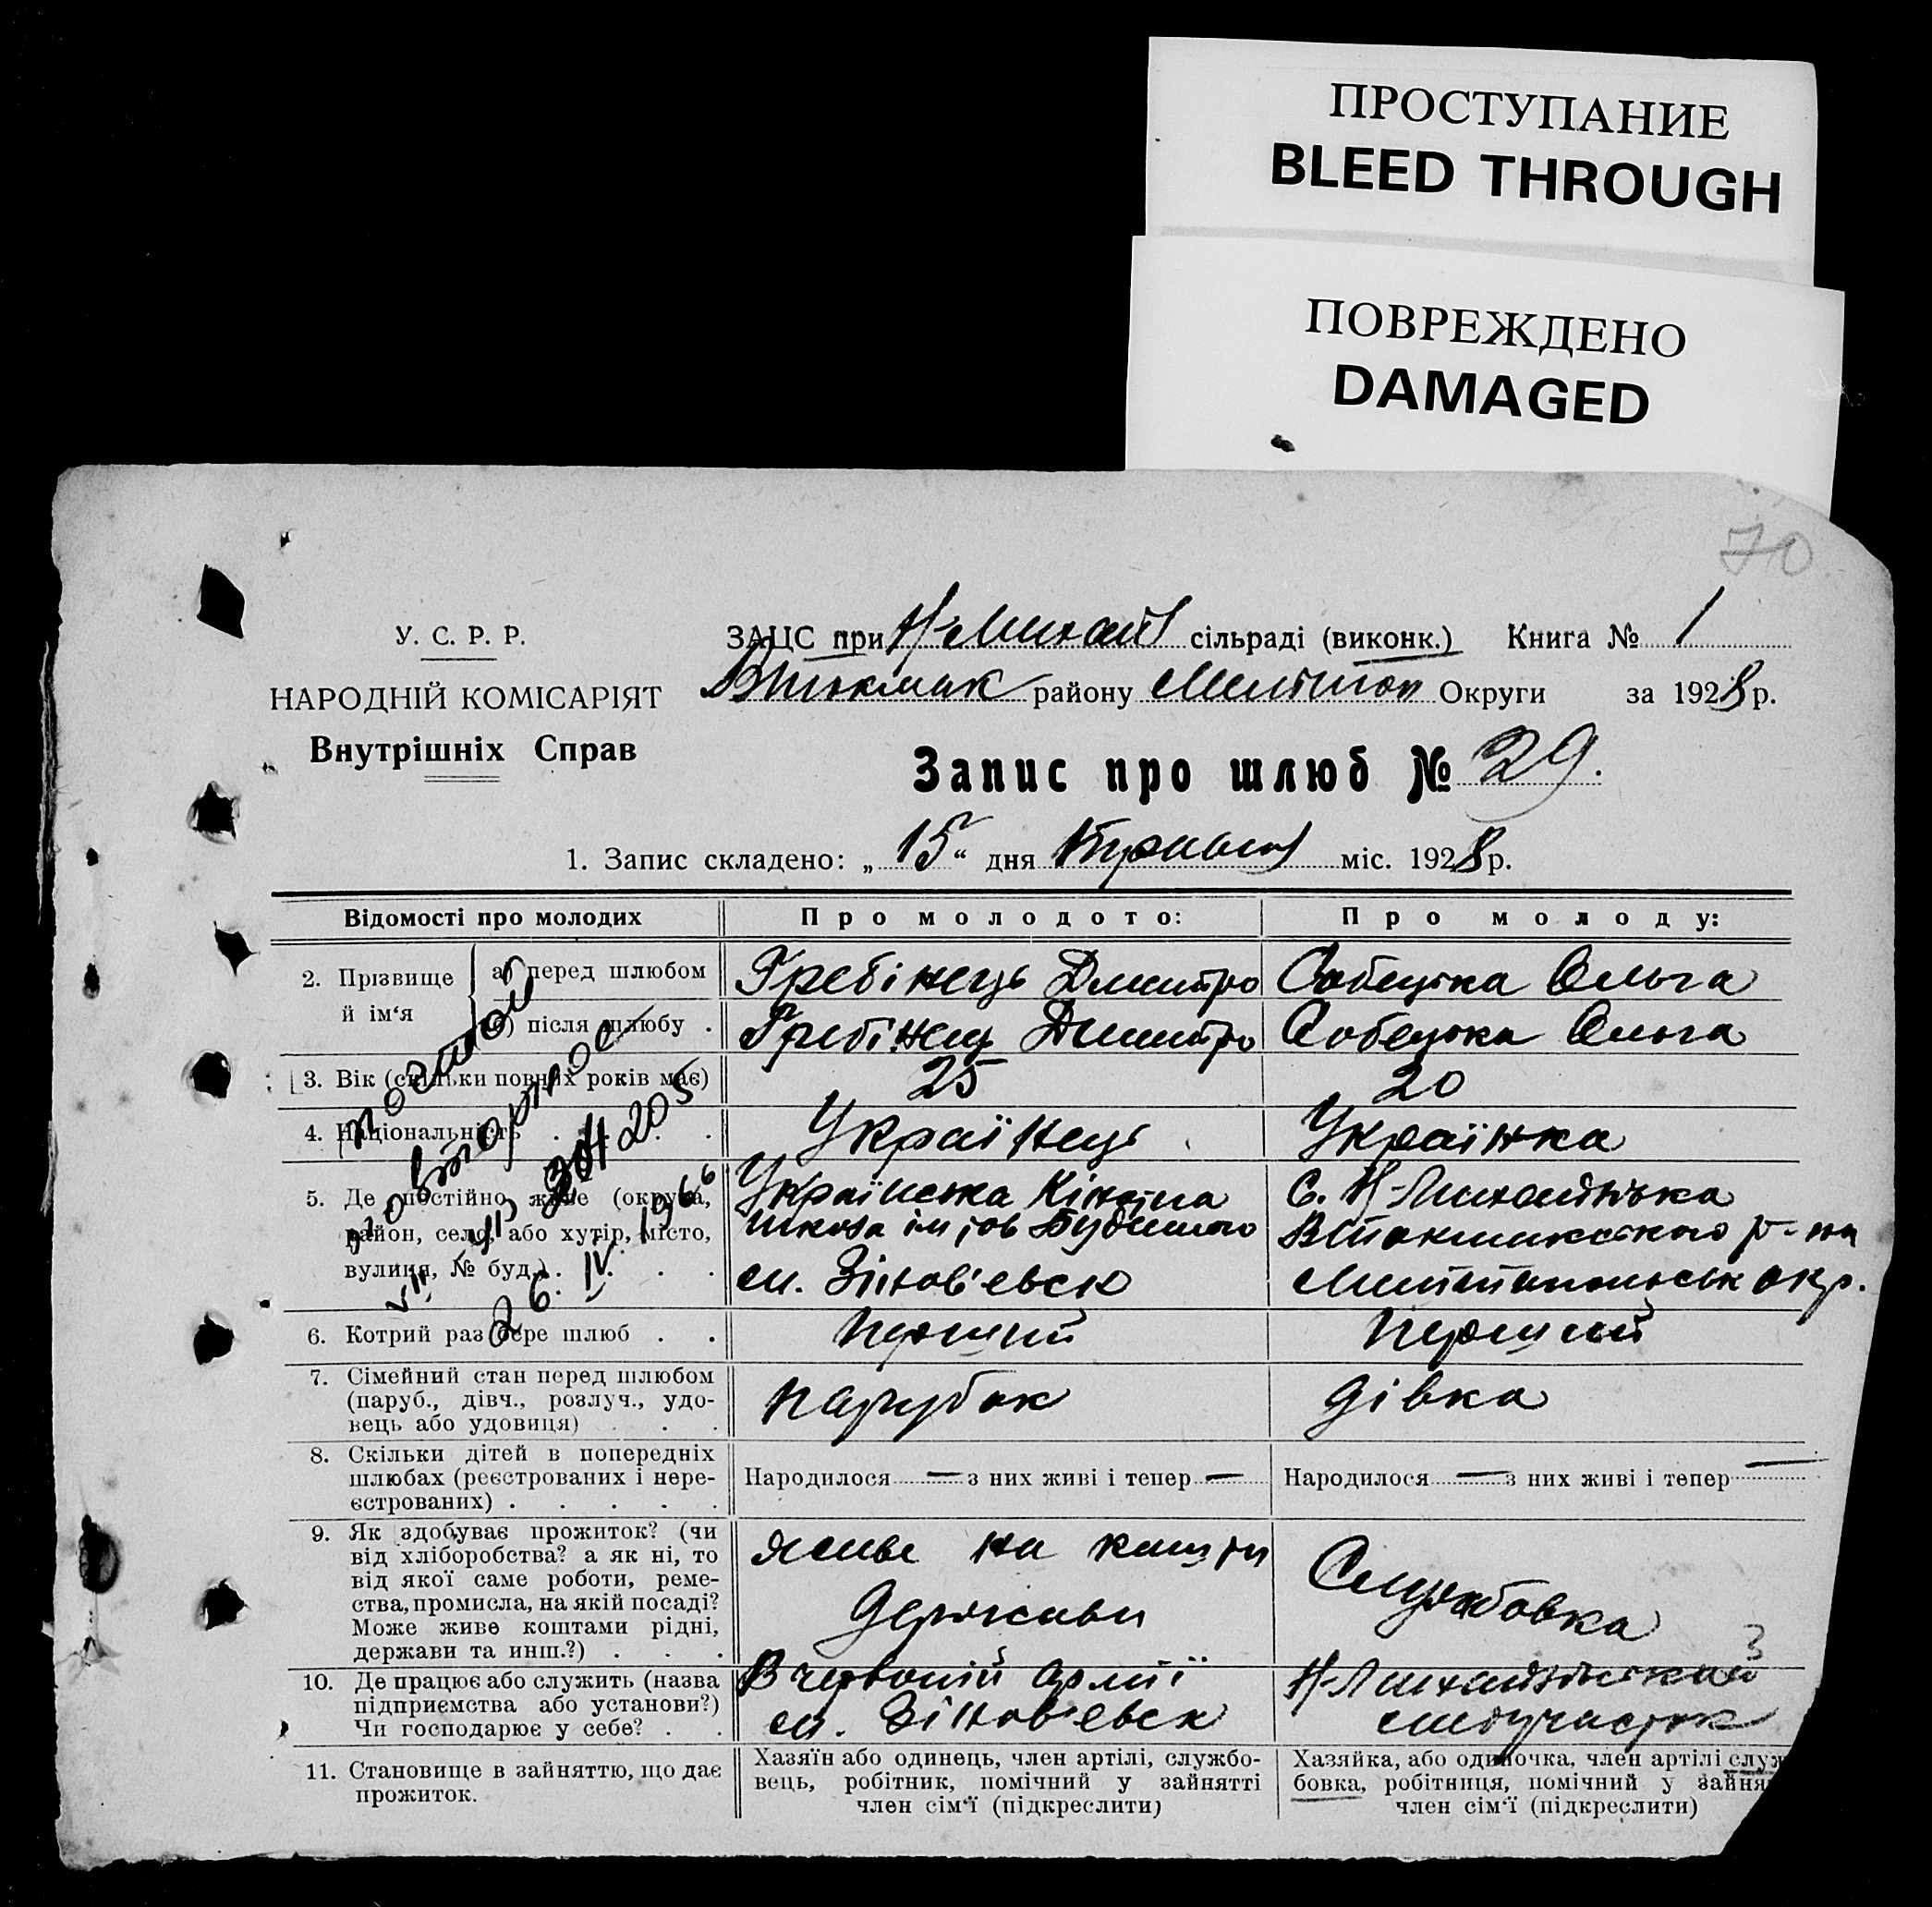 ПРОСТУПАНИЕ
BLEED THROUGH
ПОВРЕЖДЕНО
DAMAGED
70
У. С. Р. Р.
НАРОДНІЙ КОМІСАРІЯТ
Внутрішніх Справ
ЗАЦС при Н-Михайл сільраді (виконк.) Книга № 1
ВТокмак району Меліто Округи за 1928 р.
Запис про шлюб № 29.
1. Запис складено: „ 15 “ дня Травня міс. 1928 р.
Відомості про молодих
Про молодого:
Про молоду:
2. Прізвище й ім‘я
а) перед шлюбом
Гребінець Дмитро
Собецька Ольга
б) після шлюбу .
Гребінець Дмитро
Собецька Ольга
3. Вік (скільки повних років має)
25
20
4. Національність . . . .
Українець
Українка
5. Де постійно живе (округа,
район, село, або хутір, місто,
вулиця, № буд.) . . . .
Українська Кінотна
школа ім тов Будіного
м. Зінов'євськ
С. Н-Михайлівка
ВТокмакського р-на
Мелітопольськ окр.
6. Котрий раз бере шлюб . .
Перший
Перший
7. Сімейний стан перед шлюбом
(паруб., дівч., розлуч., удо-
вець або удовиця) . . .
Парубок
Дівка
8. Скільки дітей в попередніх
шлюбах (реєстрованих і нере-
єстрованих) . . . . .
Народилося — з них живі і тепер —
Народилося — з них живі і тепер —
9. Як здобуває прожиток? (чи
від хліборобства? а як ні, то
від якої саме роботи, реме-
ства, промисла, на якій посаді?
Може живе коштами рідні,
держави та инш.?) . . .
живе на кошти
Держави
Службовка
3
10. Де працює або служить (назва
підприємства або установи?)
Чи господарює у себе? . .
В червоній армії
м. Зінов'євськ
Н-Михайлівський
медучасток
11. Становище в зайняттю, що дає
прожиток.
Хазяїн або одинець, член артілі, службо-
вець, робітник, помічний у зайнятті
член сім‘ї (підкреслити)
Хазяйка, або одиночка, член артілі служ
бовка, робітниця, помічний у зайня
член сім‘ї (підкреслити)
повторное
205
26. IV. 1966